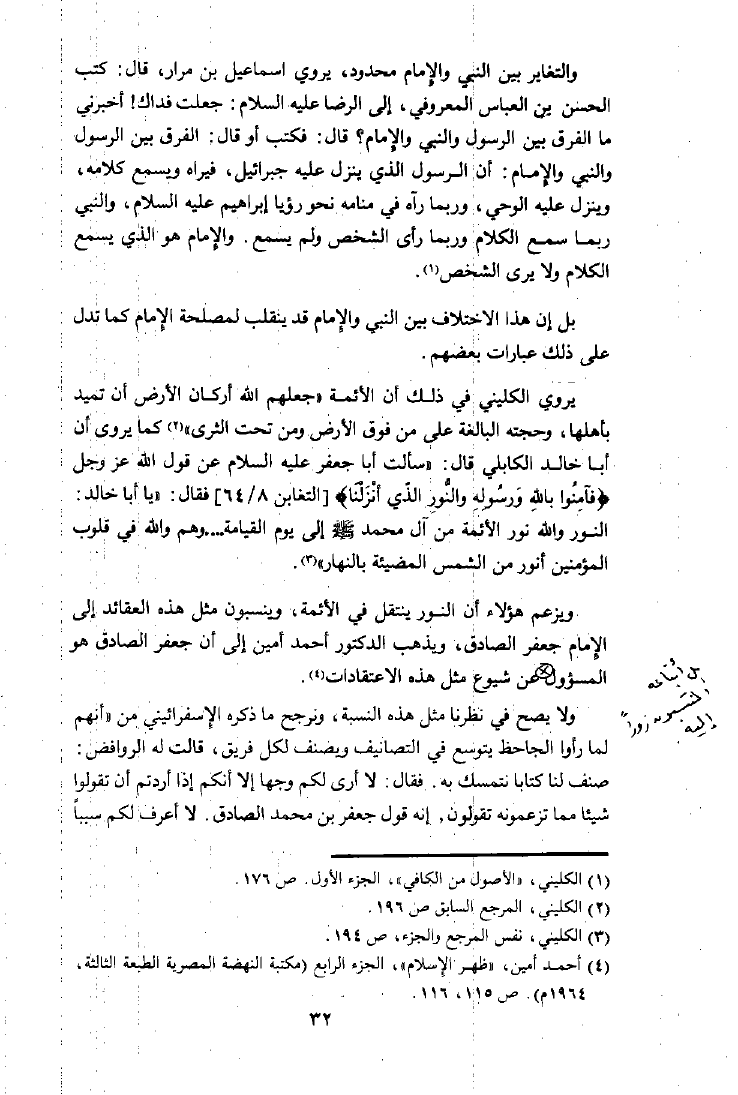 والتغاير بين النبي والإمام محدود، يروي اسماعيل بن مرار، قال: كتب
الحسن بن العباس المعروفي، إلى الرضا عليه السلام: جعلت فداك! أخبرني
ما الفرق بين الرسول والنبي والإمام؟ قال: فكتب أو قال: الفرق بين الرسول
والنبي والإمام: أن الرسول الذي ينزل عليه جبرائيل، فيراه ويسمع كلامه،
وينزل عليه الوحي، وربما رآه في منامه نحو رؤيا إبراهيم عليه السلام، والنبي
ربما سمع الكلام وربما رأى الشخص ولم يسمع. والإمام هو الذي يسمع
الكلام ولا يرى الشخص(١).
بل إن هذا الاختلاف بين النبي والإمام قد ينقلب لمصلحة الإمام كما تدل
على ذلك عبارات بعضهم.
يروي الكليني في ذلك أن الأئمة «جعلهم الله أركان الأرض أن تميد
بأهلها، وحجته البالغة على من فوق الأرض ومن تحت الثرى»(٢) كما يروى أن
أبا خالد الكابلي قال: «سألت أبا جعفر عليه السلام عن قول الله عز وجل
﴿فَآمِنُوا بِاللهِ وَرسُولِهِ والنُّورِ الذّي أنْزَلْنَا﴾ [التغابن ٦٤/٨] فقال: «يا أبا خالد:
النور والله نور الأئمة من آل محمد ﷺ إلى يوم القيامة....وهم والله في قلوب
المؤمنين أنور من الشمس المضيئة بالنهار»(٣).
ويزعم هؤلاء أن النور ينتقل في الأئمة، وينسبون مثل هذه العقائد إلى
الإمام جعفر الصادق، ويذهب الدكتور أحمد أمين إلى أن جعفر الصادق هو
المسؤول عن شيوع مثل هذه الاعتقادات(٤).
ولا يصح في نظرنا مثل هذه النسبة، ونرجح ما ذكره الإسفرائيني من «أنهم
لما رأوا الجاحظ يتوسع في التصانيف ويصنف لكل فريق، قالت له الروافض:
صنف لنا كتابا نتمسك به. فقال: لا أرى لكم وجها إلا أنكم إذا أردتم أن تقولوا
شيئا مما تزعمونه تقولون, إنه قول جعفر بن محمد الصادق. لا أعرف لكم سبباً
(١) الكليني، «الأصول من الكافي»، الجزء الأول. ص ١٧٦.
(٢) الكليني، المرجع السابق ص ١٩٦.
(٣) الكليني، نفس المرجع والجزء، ص ١٩٤.
(٤) أحمد أمين، «ظهر الإسلام»، الجزء الرابع (مكتبة النهضة المصرية الطبعة الثالثة،
١٩٦٤م). ص ١١٥، ١١٦.
٣٢
بل
زوراً
إليه